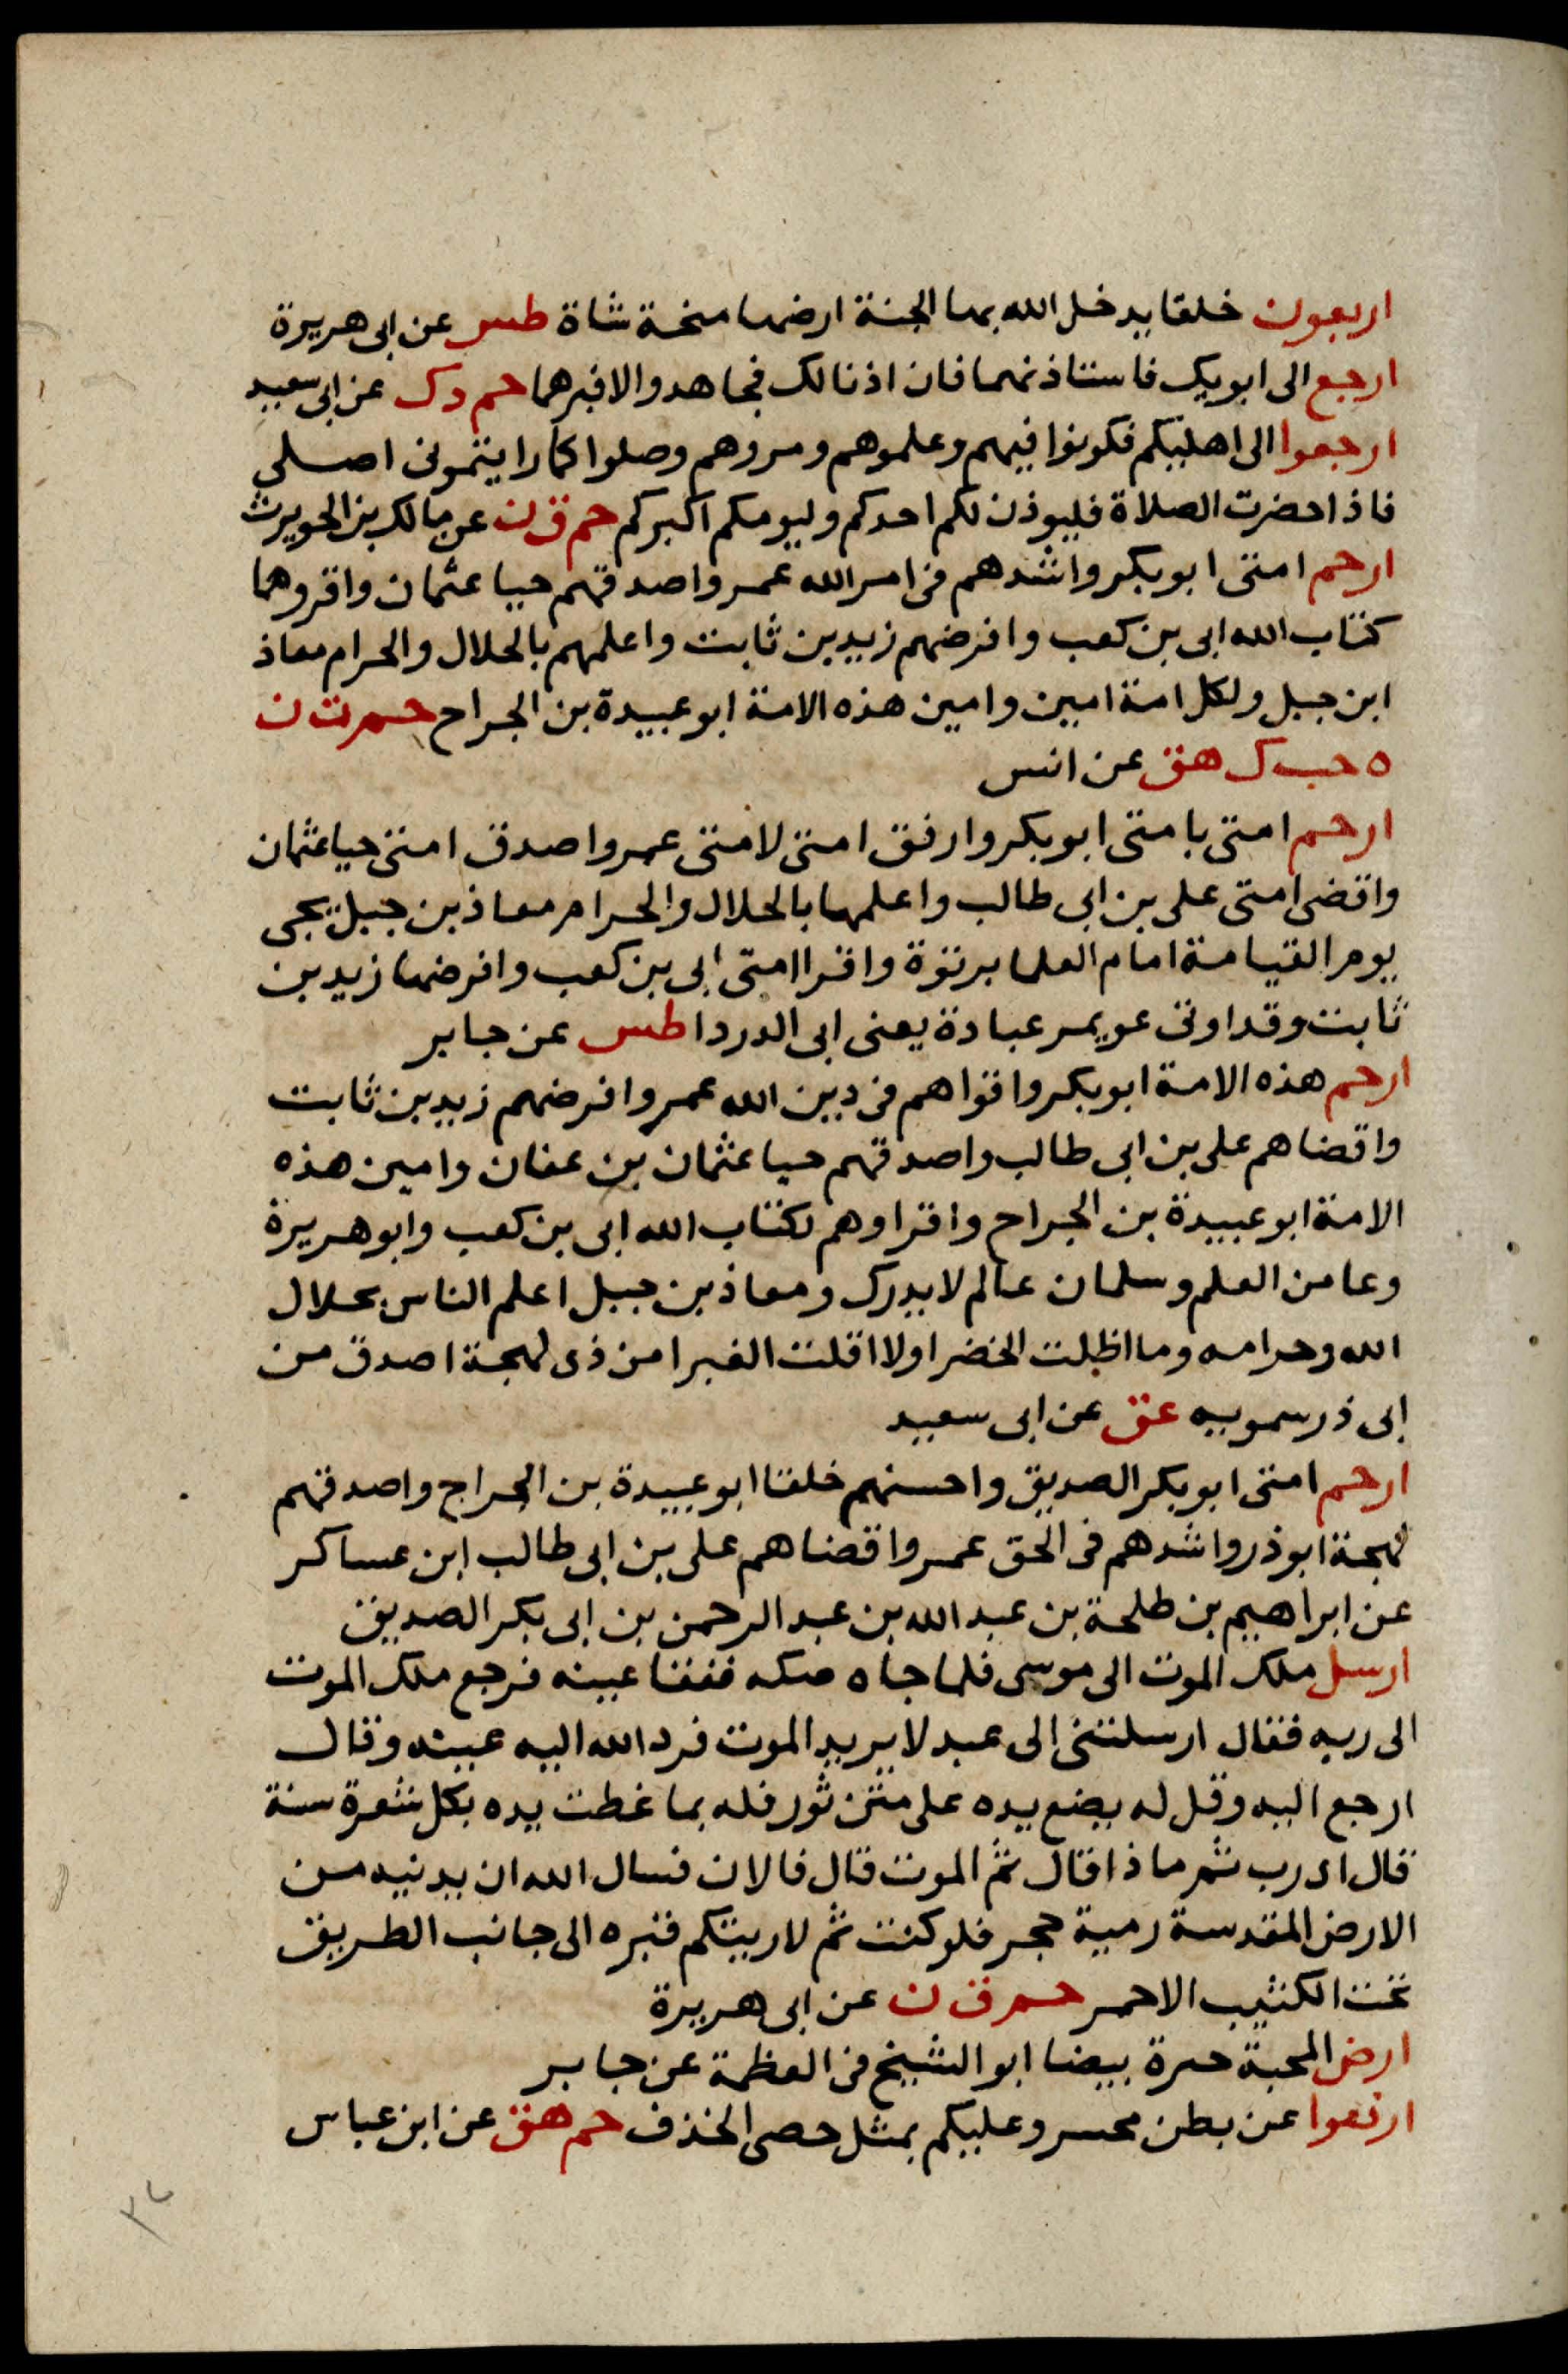 اربعون خلقا يدخل الله بها الجنة ارفعها منحة شاة طس عن ابى هريرة
ارجع الى ابويك فاستاذنهما فان اذنا لك فجاهد والا فبرهما حم د ك عن ابى سعيد
ارجعوا الى اهليكم فكونوا فيهم وعلموهم ومروهم وصلوا كما رايتمونى اصلى
فاذا حضرت الصلاة فليوذن لكم احدكم وليومكم اكبركم حم ق ن عن مالك بن الحويرث
ارحم امتى ابو بكر واشدهم فى امر الله عمر واصدقهم حيا عثمان واقروهما
كتاب الله ابى بن كعب وافرضهم زيد بن ثابت واعلمهم بالحلال والحرام معاذ
ابن جبل ولكل امة امين وامين هذه الامة ابو عبيدة بن الجراح حم ت ن
ه حب ك هق عن انس
ارحم امتى بامتى ابو بكر وارفق امتى لامتى عمر واصدق امتى حيا عثمان
واقضى امتى على بن ابى طالب واعلمها بالحلال والحرام معاذ بن جبل يجى
يوم القيامة امام العلما برتوة واقرا امتى ابى بن كعب وافرضها زيد بن
ثابت وقد اوتى عويمر عبادة يعنى ابى الدردا طس عن جابر
ارحم هذه الامة ابو بكر واقواهم فى دين الله عمر وافرضهم زيد بن ثابت
واقضاهم على بن ابى طالب واصدقهم حيا عثمان بن عفان وامين هذه
الامة ابو عبيدة بن الجراح واقراوهم لكتاب الله ابى بن كعب وابو هريرة
وعا من العلم وسلمان عالم لا يدرك ومعاذ بن جبل اعلم الناس بحلال
الله وحرامه وما اظلت الخضرا ولا اقلت الغبرا من ذى لهجة اصدق من
ابى ذر سمويه عق عن ابى سعيد
ارحم امتى ابو بكر الصديق واحسنهم خلقا ابو عبيدة بن الجراح واصدقهم
لهجة ابو ذر واشدهم فى الحق عمر واقضاهم على بن ابى طالب ابن عساكر
عن ابراهيم بن طلحة بن عبد الله بن عبد الرحمن بن ابى بكر الصديق
ارسل ملك الموت الى موسى فلما جاه صكه ففقا عينه فرجع ملك الموت
الى ربه فقال ارسلتنى الى عبد لا يريد الموت فرد الله اليه عينه وقال
ارجع اليه وقل له يضع يده على متن ثور فله بما غطت يده بكل شعرة سنة
قال اى رب ثم ماذا قال ثم الموت قال فالان فسال الله ان يدنيه من
الارض المقدسة رمية حجر فلو كنت ثم لاريتكم قبره الى جانب الطريق
تحت الكثيب الاحمر حم ق ن عن ابى هريرة
ارض المحبة حرة بيضا ابو الشيخ فى العظمة عن جابر
ارفعوا عن بطن محسر وعليكم بمثل حصى الخذف حم هق عن ابن عباس